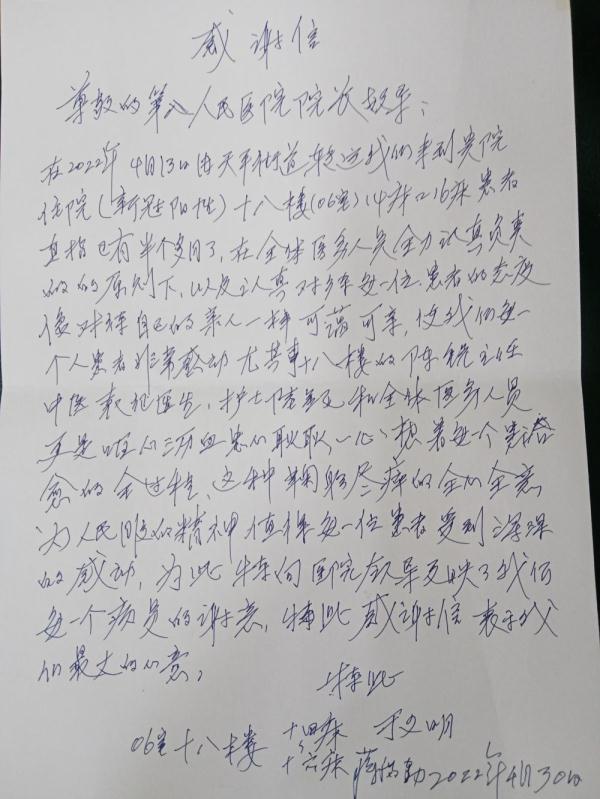 感谢信
尊敬的第八人民医院院长领导：
在2022年4月13日由天平街道转送我们来到贵院
住院（新冠阳性）十八楼（06室）14床口16床患者
直指已有半个多月了，在全体医务人员全力认真负责
的的原则下，以及认真对待每一位患者的态度
像对待自己的亲人一样可蔼可亲，使我们每一
个人患者非常感动尤其事十八楼的陈锐主任
中医 医生，护士 和全体医务人员
真是呕心沥血忠心耿耿，一心想着每一个患者治
愈的全过程，这种鞠躬尽瘁的全心全意
为人民服的精神值得每一位患者受到深深
的感动，为此特向医院领导反映了我们
每一个病员的谢意，特此感谢信表示我
们最大的心意，
特此
06室十八楼 十四床 明
十六床 2022年4月30日